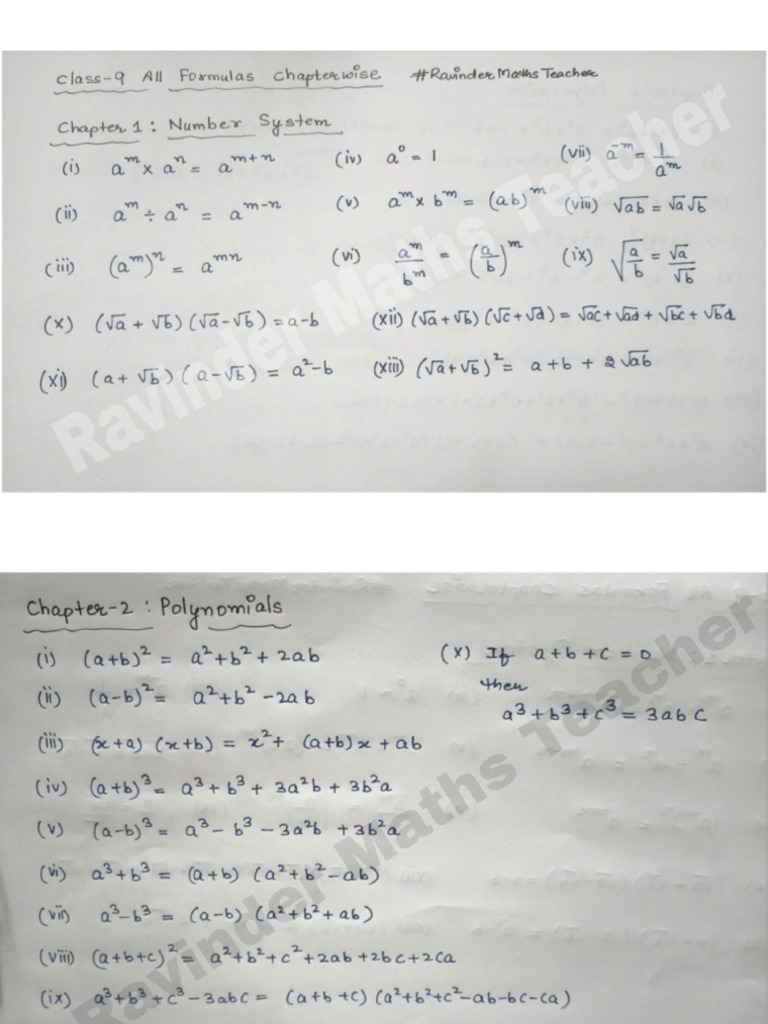 Class-9 All Formulas Chapterwise #Ravinder Maths Teacher
Chapter 1 : Number System
(i) a^m × a^n = a^(m+n) (iv) a^0 = 1 (vii) a^-m = 1/a^m
(ii) a^m ÷ a^n = a^(m-n) (v) a^m × b^m = (ab)^m (viii) √ab = √a √b
(iii) (a^m)^n = a^mn (vi) a^m/b^m = (a/b)^m (ix) √(a/b) = √a/√b
(x) (√a + √b) (√a - √b) = a-b (xii) (√a + √b) (√c + √d) = √ac + √ad + √bc + √bd
(xi) (a + √b) (a - √b) = a² - b (xiii) (√a + √b)² = a + b + 2√ab
Ravinder Maths Teacher
Chapter-2 : Polynomials
(i) (a+b)² = a² + b² + 2ab
(ii) (a-b)² = a² + b² - 2ab
(iii) (x+a) (x+b) = x² + (a+b)x + ab
(iv) (a+b)³ = a³ + b³ + 3a²b + 3b²a
(v) (a-b)³ = a³ - b³ - 3a²b + 3b²a
(vi) a³ + b³ = (a+b) (a² + b² - ab)
(vii) a³ - b³ = (a-b) (a² + b² + ab)
(viii) (a+b+c)² = a² + b² + c² + 2ab + 2bc + 2ca
(ix) a³ + b³ + c³ - 3abc = (a+b+c) (a² + b² + c² - ab - bc - ca)
(x) If a + b + c = 0
then
a³ + b³ + c³ = 3abc
Ravinder Maths Teacher